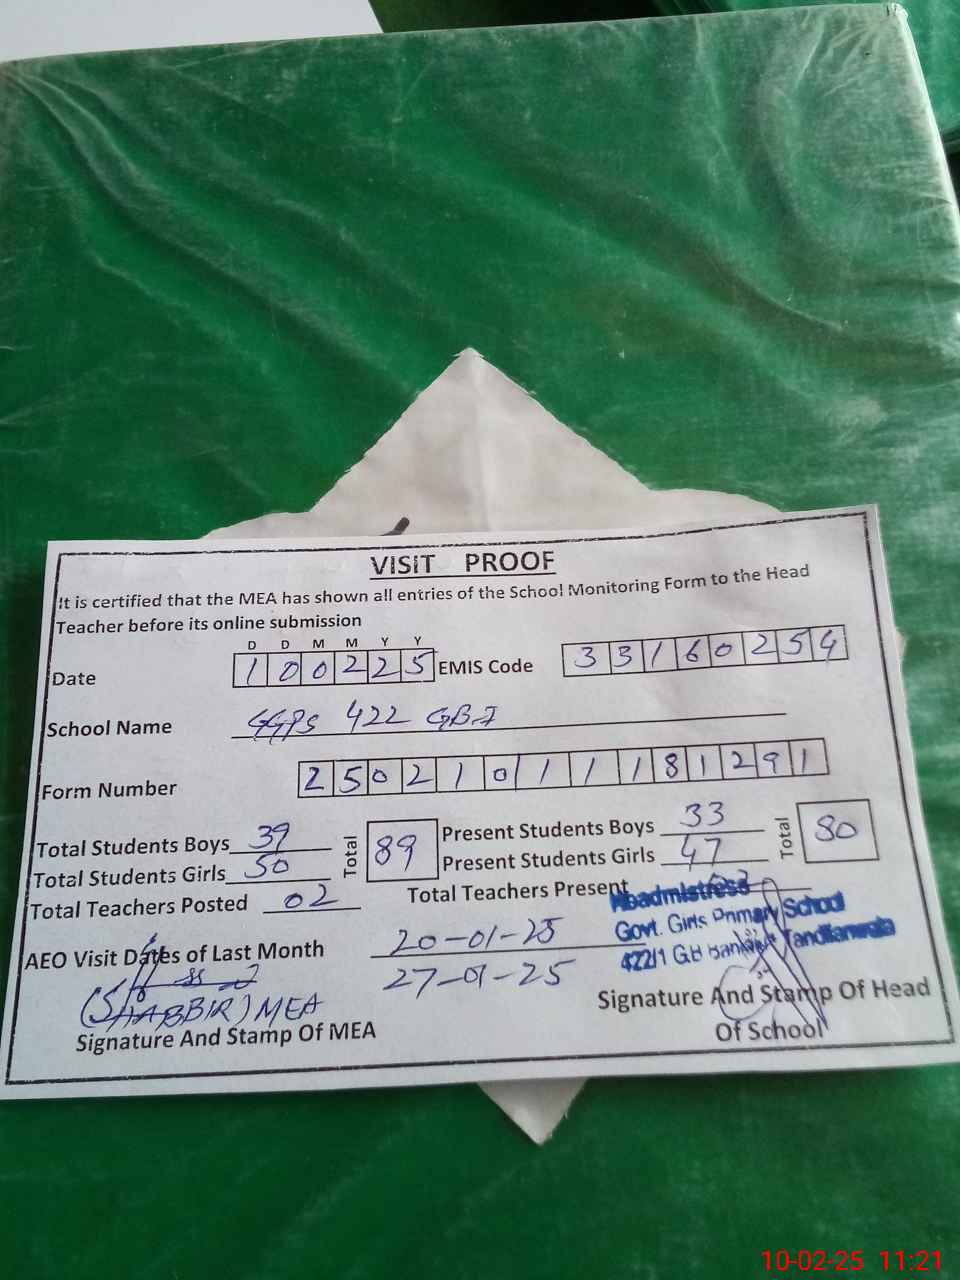 VISIT PROOF
It is certified that the MEA has shown all entries of the School Monitoring Form to the Head
Teacher before its online submission
D D M M Y Y
Date 1 0 0 2 2 5 EMIS Code 3 3 1 6 0 2 5 4
School Name GGPS 422 GB-I
Form Number 2 5 0 2 1 0 1 1 1 8 1 2 9 1
Total Students Boys 39 Total 89 Present Students Boys 33 Total 80
Total Students Girls 50 Present Students Girls 47
Total Teachers Posted 02 Total Teachers Present
Headmistress
Govt. Girls Primary School
422/1 G.B Tandlianwala
AEO Visit Dates of Last Month 20-01-25
27-01-25
(SHABBIR) MEA
Signature And Stamp Of MEA
Signature And Stamp Of Head
Of School
10-02-25 11:21